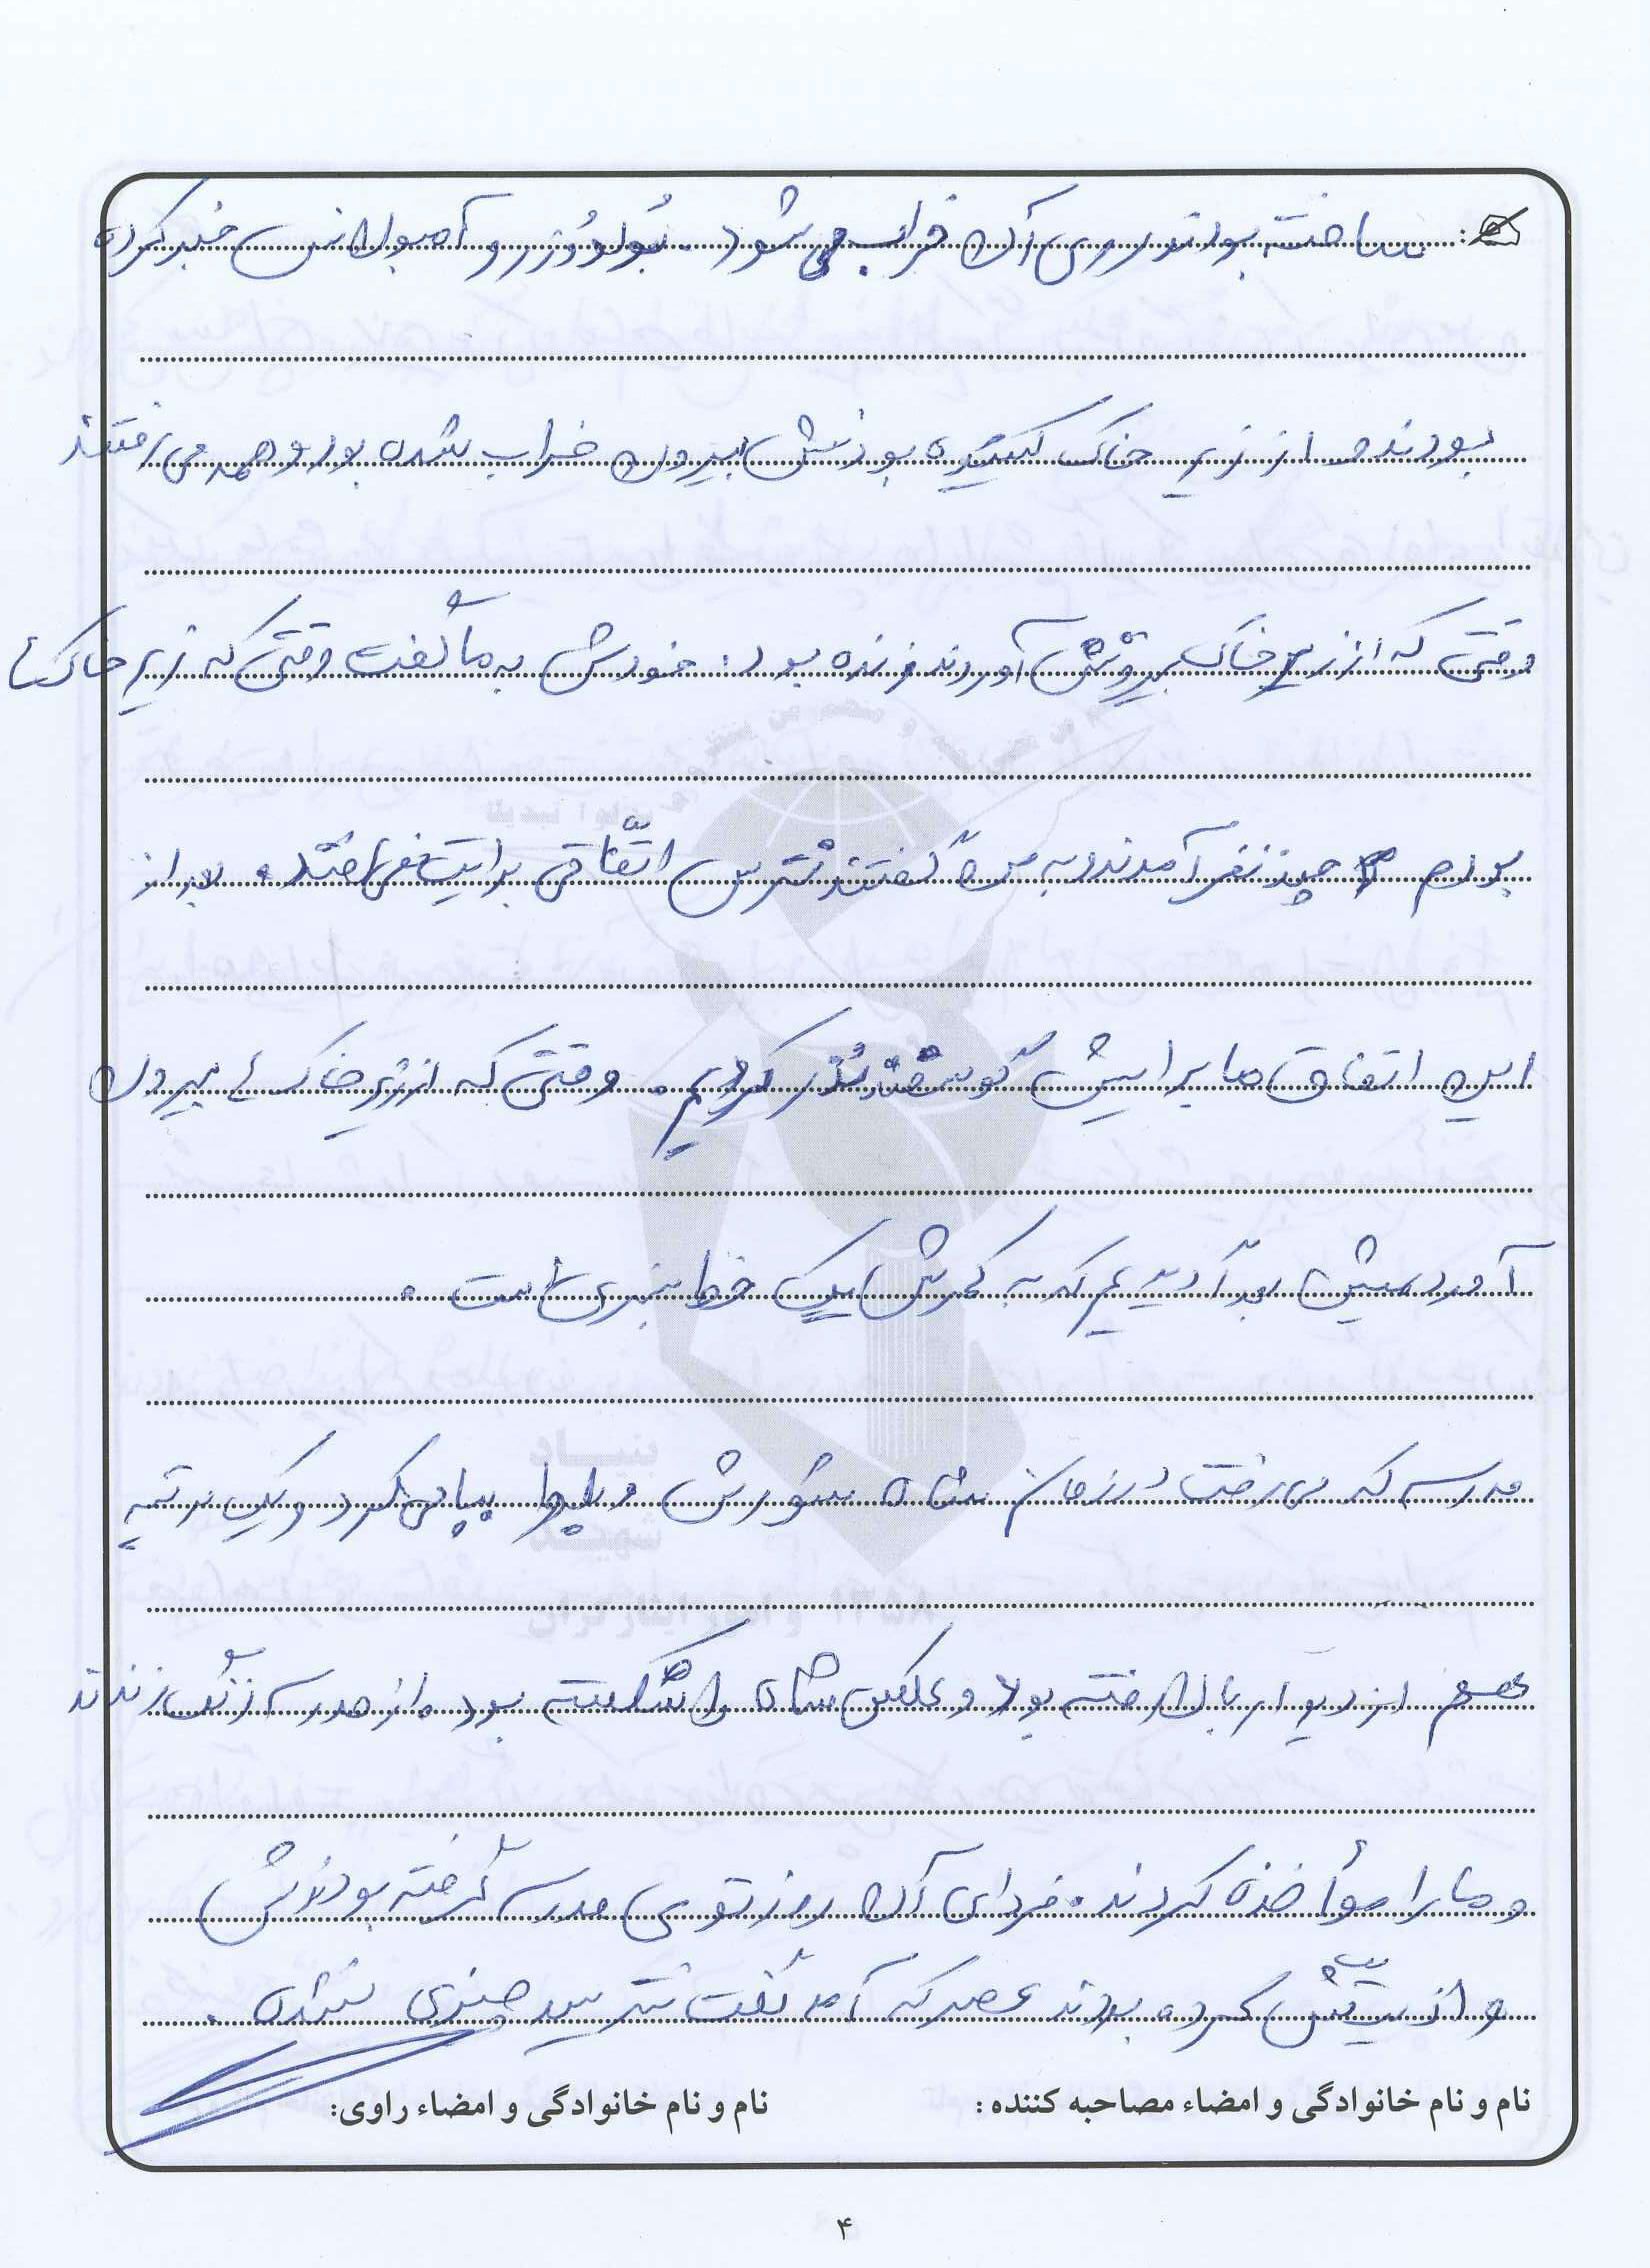 ساخته بودند روی آن خراب می شود. بُولدُوزر و آمبولانس خبر کرده
بودند و از زیر خاک کشیده بودنش بیرون خراب شده بود و همه می رفتند
وقتی که از زیر خاک بیرونش آوردند زنده بود: خودش به ما گفت وقتی که زیر خاک ها
بودم چند نفر آمدند به من گفتند نترس اتّفاقی برایت نمی افتد. بعد از
این اتفاق ما برایش گوسفند نذر کردیم. وقتی که از زیر خاک ها بیرون
آوردیمش بعد دیدیم که به کمرش یک خط بنری است.
مدرسه که می رفت در زمان شاه شورش و بلوا بپا می کرد و یک مرتبه
هم از دیوار بالا رفته بود و عکس شاه را شکسته بود. از مدرسه زنگ زدند
و ما را مؤاخذه کردند. فردای آن روز توی مدرسه گرفته بودنش
و اذیتش کرده بودند عصر که آمد گفت نترسید چیزی نشده.
نام و نام خانوادگی و امضاء مصاحبه کننده: نام و نام خانوادگی و امضاء راوی:
۴